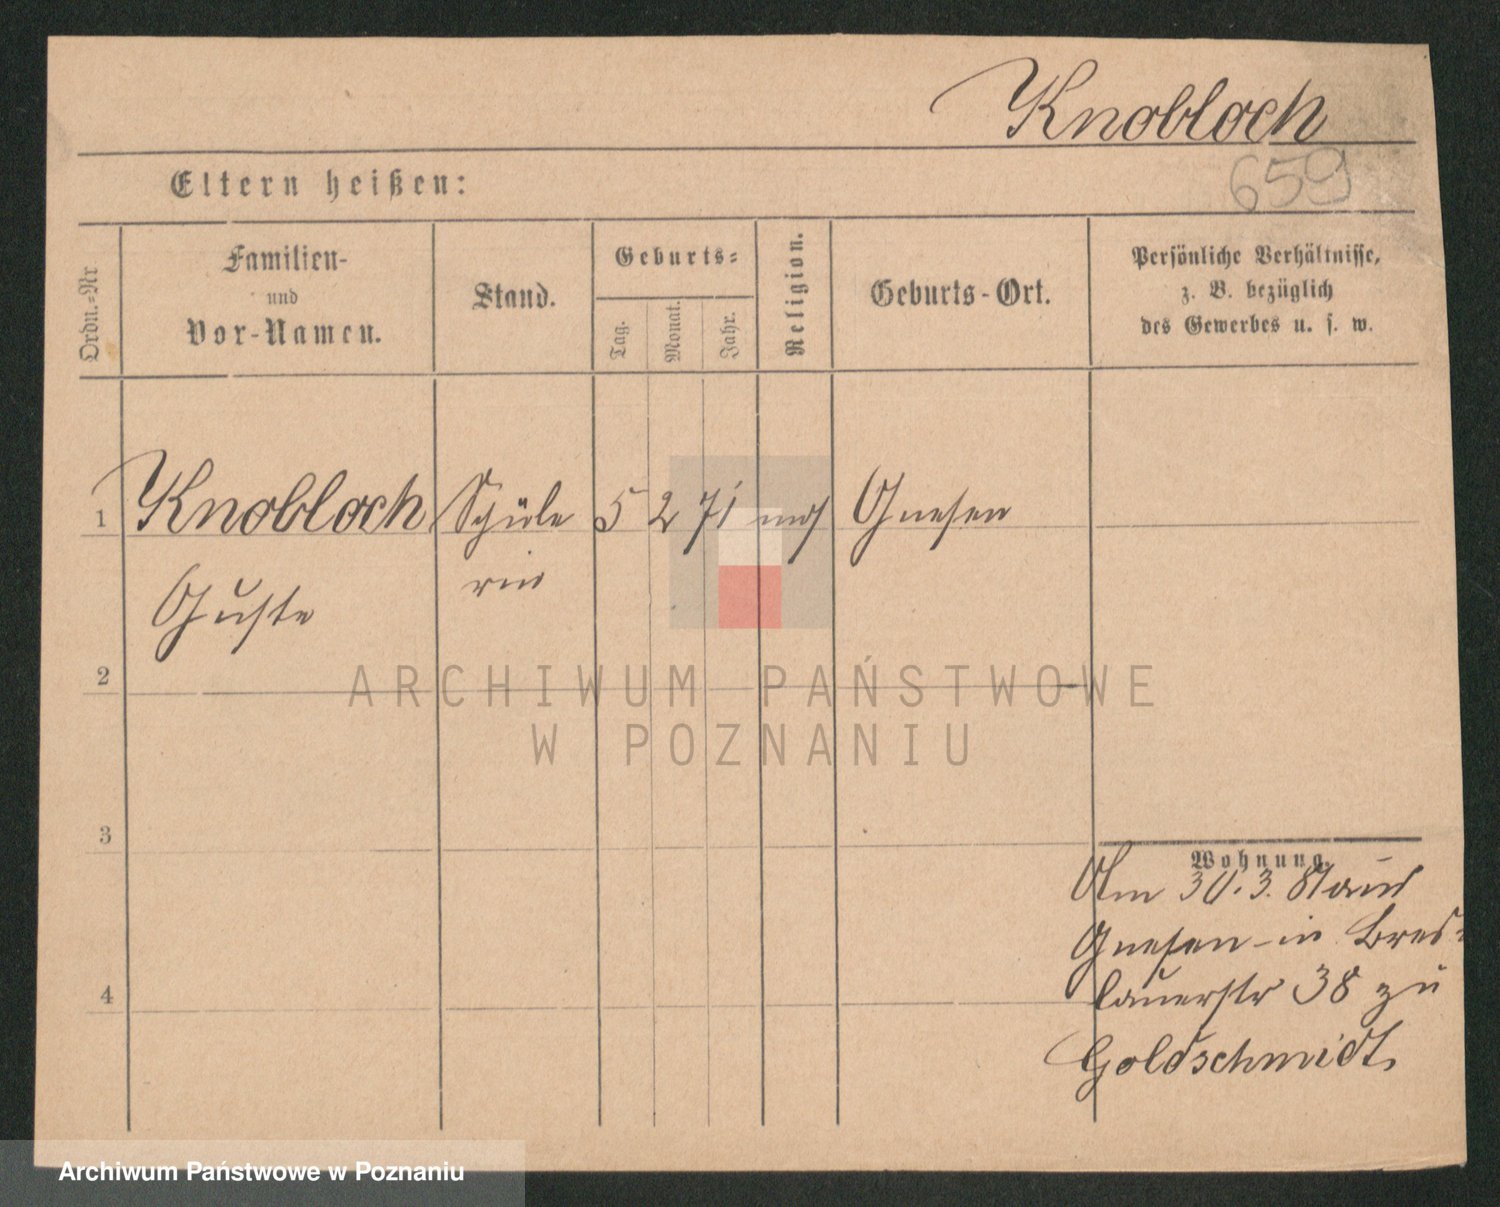 Knobloch
659
Eltern heißen:
Ordn.-Nr
Familien-
und
Vor-Namen.
Stand.
Geburts-
Tag.
Monat.
Jahr.
Religion.
Geburts-Ort.
Persönliche Verhältnisse,
z. B. bezüglich
des Gewerbes u. s. w.
1 Knobloch Schüle 5 2 71 mos Gnesen
rin
Guste
2
ARCHIWUM PAŃSTWOWE
W POZNANIU
3
Wohnung.
Am 30. 3. 81 aus
Gnesen in Bres-
lauerstr 38 zu
4
Goldschmidt.
Archiwum Państwowe w Poznaniu